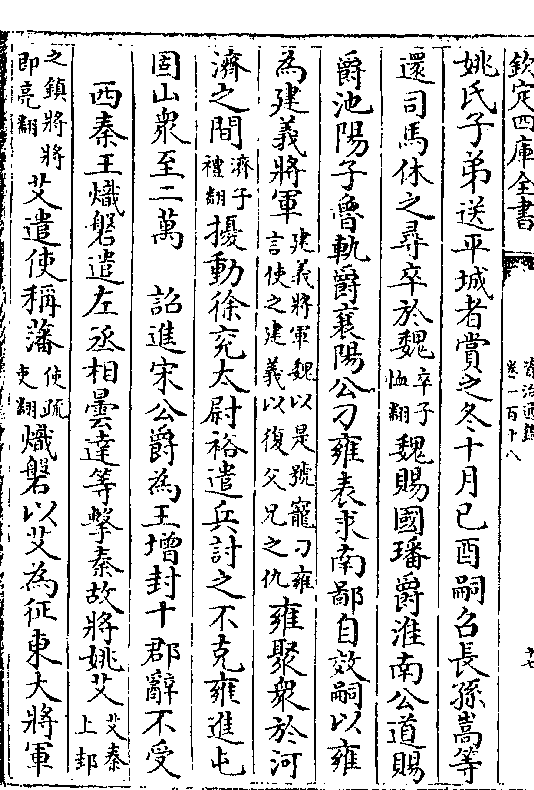 欽定四庫全書
資治通鑑
卷一百十八
十七
姚氏子弟送平城者賞之冬十月己酉嗣召長孫嵩等
還司馬休之尋卒於魏卒子恤翻魏賜國璠爵淮南公道賜
爵池陽子魯軌爵襄陽公刁雍表求南鄙自效嗣以雍
為建義將軍建義將軍魏以是號寵刁雍言使之建義以復父兄之仇雍聚衆於河
濟之間濟子禮翻擾動徐兗太尉裕遣兵討之不克雍進屯
固山衆至二萬 詔進宋公爵為王增封十郡辭不受
西秦王熾磐遣左丞相曇達等擊秦故將姚艾艾秦上邽
之鎮將將即亮翻艾遣使稱藩使疏吏翻熾磐以艾為征東大將軍